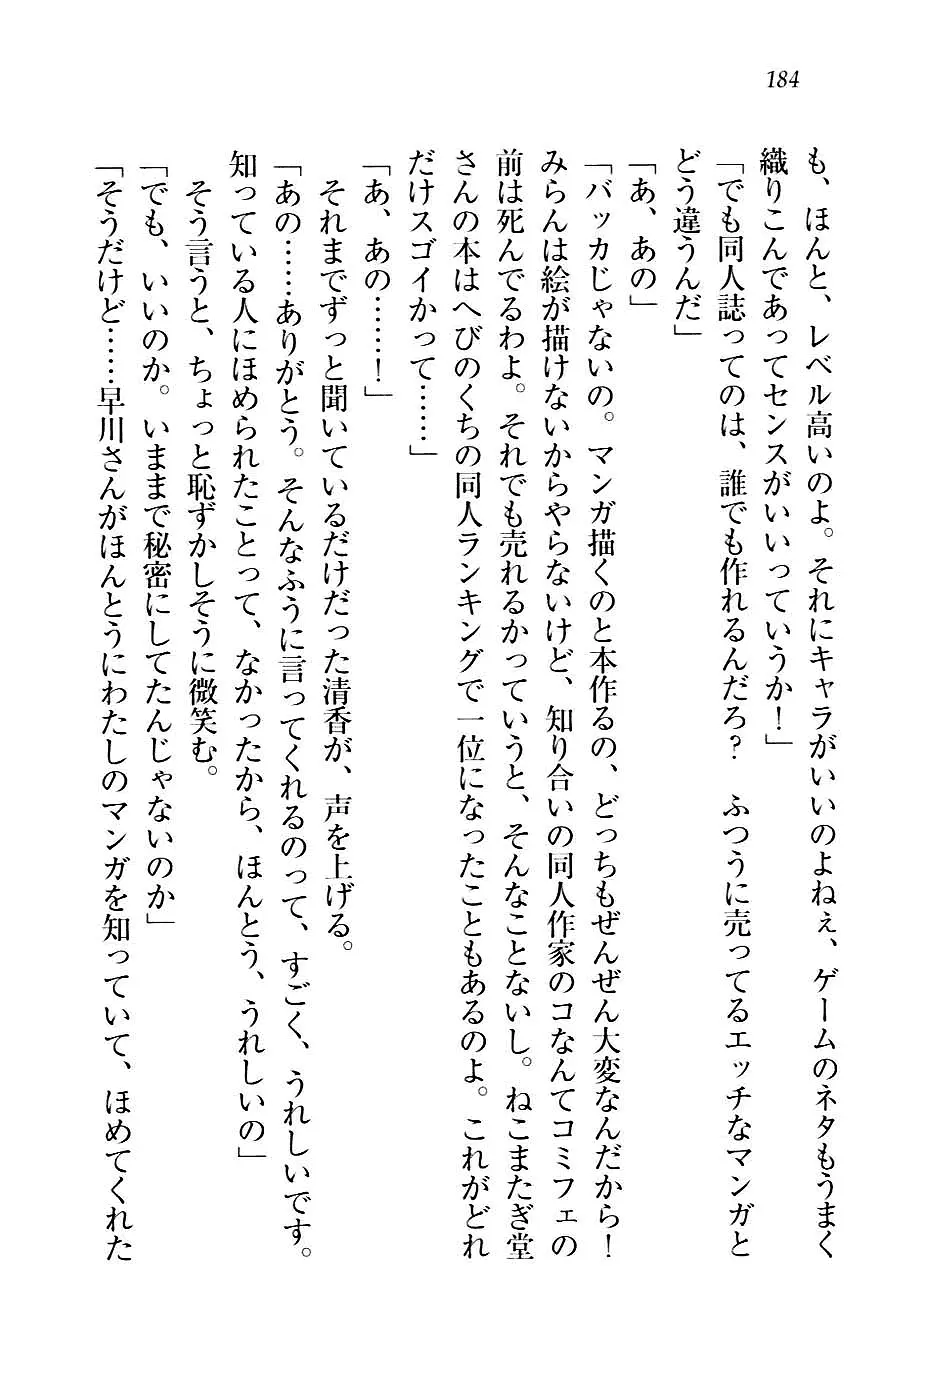 184
も、ほんと、レベル高いのよ。それにキャラがいいのよねぇ、ゲームのネタもうまく
織りこんであってセンスがいいっていうか！」
「でも同人誌ってのは、誰でも作れるんだろ？　ふつうに売ってるエッチなマンガと
どう違うんだ」
「あ、あの」
「バッカじゃないの。マンガ描くのと本作るの、どっちもぜんぜん大変なんだから！
みらんは絵が描けないからやらないけど、知り合いの同人作家のコなんてコミフェの
前は死んでるわよ。それでも売れるかっていうと、そんなことないし。ねこまたぎ堂
さんの本はへびのくちの同人ランキングで一位になったこともあるのよ。これがどれ
だけスゴイかって……」
「あ、あの……！」
　それまでずっと聞いているだけだった清香が、声を上げる。
「あの……ありがとう。そんなふうに言ってくれるのって、すごく、うれしいです。
知っている人にほめられたことって、なかったから、ほんとう、うれしいの」
　そう言うと、ちょっと恥ずかしそうに微笑む。
「でも、いいのか。いままで秘密にしてたんじゃないのか」
「そうだけど……早川さんがほんとうにわたしのマンガを知っていて、ほめてくれた